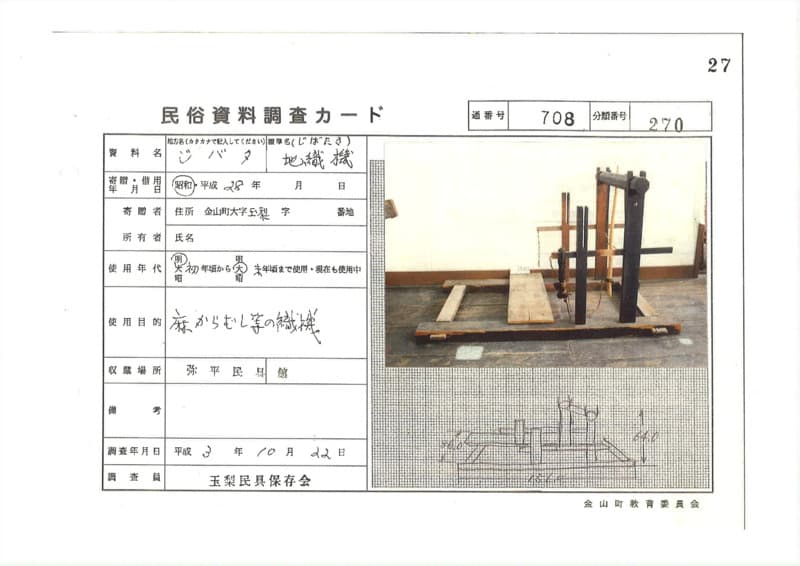 27
民俗資料調査カード
通番号 708 分類番号 270
資料名 地方名(カタカナで記入してください) 標準名(じばたき)
ジバタ 地織機
寄贈・借用年月日 昭和・平成 28年 月 日
寄贈者 住所 金山町大字玉梨 字 番地
所有者 氏名
使用年代 明大昭 初年頃から 明大昭 末年頃まで使用・現在も使用中
使用目的 麻からむし等の織機
収蔵場所 弥平民具館
備考
調査年月日 平成 3年 10月 22日
調査員 玉梨民具保存会
64.0
金山町教育委員会